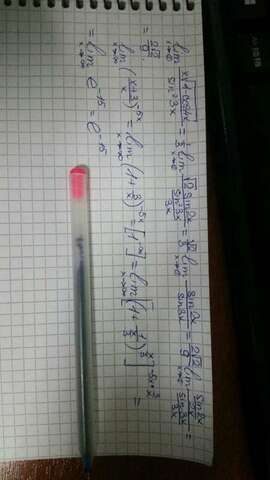 lim x→0 x√(1-cos4x) / sin²3x = 1/3 lim x→0 √2 sin2x / (sin²3x / 3x) = √2/3 lim x→0 sin2x / sin3x = 2√2/9 lim x→0 (sin2x / 2x) / (sin3x / 3x) =
= 2√2/9
lim x→∞ ((x+3)/x)^(-5x) = lim x→∞ (1+3/x)^(-5x) = [1^∞] = lim x→∞ [(1+1/(x/3))^(x/3)]^(-5x·3/x) =
= lim x→∞ e^(-15) = e^(-15)